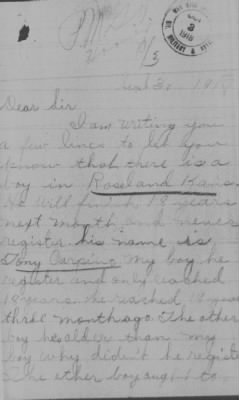 Dear Sir.
I am writing you
a few lines to let you
know that there is a
boy in Roseland Kans.
He will finish 18 years
next month and never
register his name is
Tony Carpino My boy he
register and only reached
18 years. he reached 18 years
three month ago. The other
boy he older than my
boy why didn't he registe
The other boy aught to